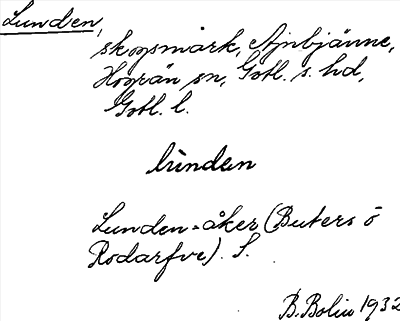 Lunden,
skogsmark, Ajnbjänne,
Hogrän sn, Gotl. s. hd,
Gotl. l.
lùnden
Lunden-åker (Buters ö
Rodarfve). S.
B. Bolin 1932